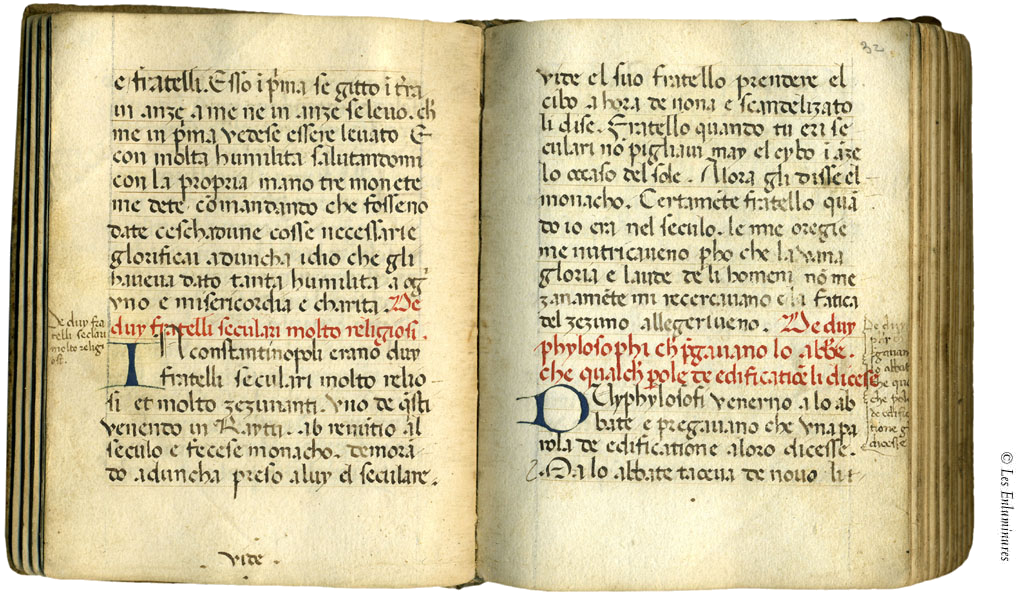 e fratelli. Esso i p̄ma se gitto i t̄ra
in anze a me ne in anze se leuo. ch̄
me in p̄ma vedese essere leuato E
con molta humilita salutandomi
con la propria mano tre monete
me dete comandando che fosseno
date ceschadune cosse necessarie
glorificai aduncha idio che gli
haueua dato tanta humilita a og
vno e misericordia e charita. De
duy fratelli seculari molto religiosi.
IN constantinopoli erano duy
fratelli seculari molto relio
si et molto zezunanti. vno de q̄sti
venendo in Raytu. ab renūtio al
seculo e fecese monacho. demorā
do aduncha preso aluy el seculare.
vite.
De duy fra
telli seclari
molto religi
osi.
32
vite el suo fratello prendere el
cibo a hora de nona e scandelizato
li dise. Fratello quando tu eri se
culari nō pigliaui may el cybo i āze
lo occaso del sole. Alora gli disse el
monacho. Certamēte fratello quā
do io era nel seculo. le mie oregie
me nutricaueno pho che la vana
gloria e laude de li homeni nō me
zanamēte mi recercauano e la fatica
del zezuno allegeriueno. De duy
phylosophi ch̄ p̄gauano lo abbe.
che qualch̄ parole de edificatiōe li dicese
DUyphylosofi venerno a lo ab
bate e pregauano che vna pa
rola de edificatione aloro dicesse.
Da lo abbate taceua de nouo li
De duy
p̄gauan
lo abbat
che qua
che pole
de edific
tione g
dicesse
© Les Enluminures